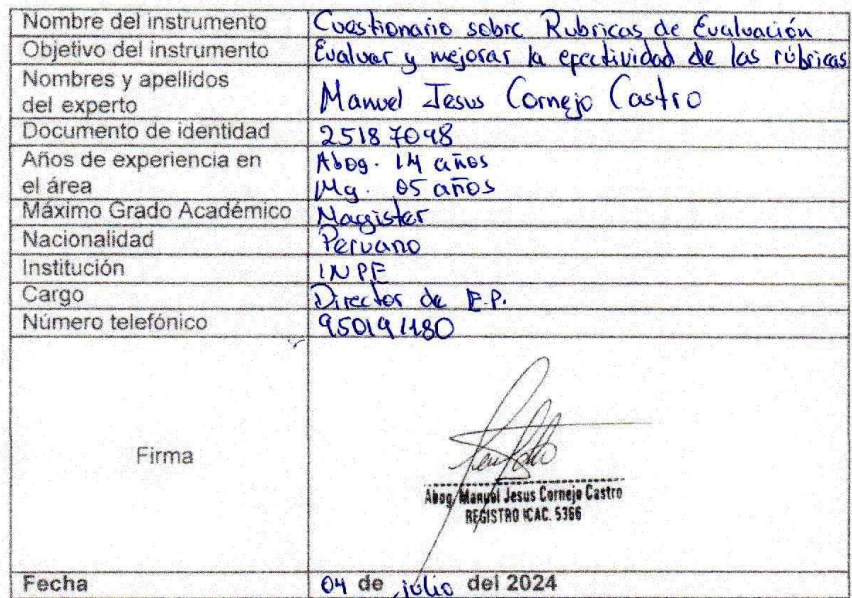 Nombre del instrumento Cuestionario sobre Rubricas de Evaluación
Objetivo del instrumento Evaluar y mejorar la efectividad de las rúbricas
Nombres y apellidos
del experto Manuel Jesus Cornejo Castro
Documento de identidad 25187098
Años de experiencia en Abog. 14 años
el área Mg. 05 años
Máximo Grado Académico Magister
Nacionalidad Peruano
Institución INPE
Cargo Director de E.P.
Número telefónico 950191180
Firma
Abog. Manuel Jesus Cornejo Castro
REGISTRO ICAC. 5366
Fecha 04 de julio del 2024